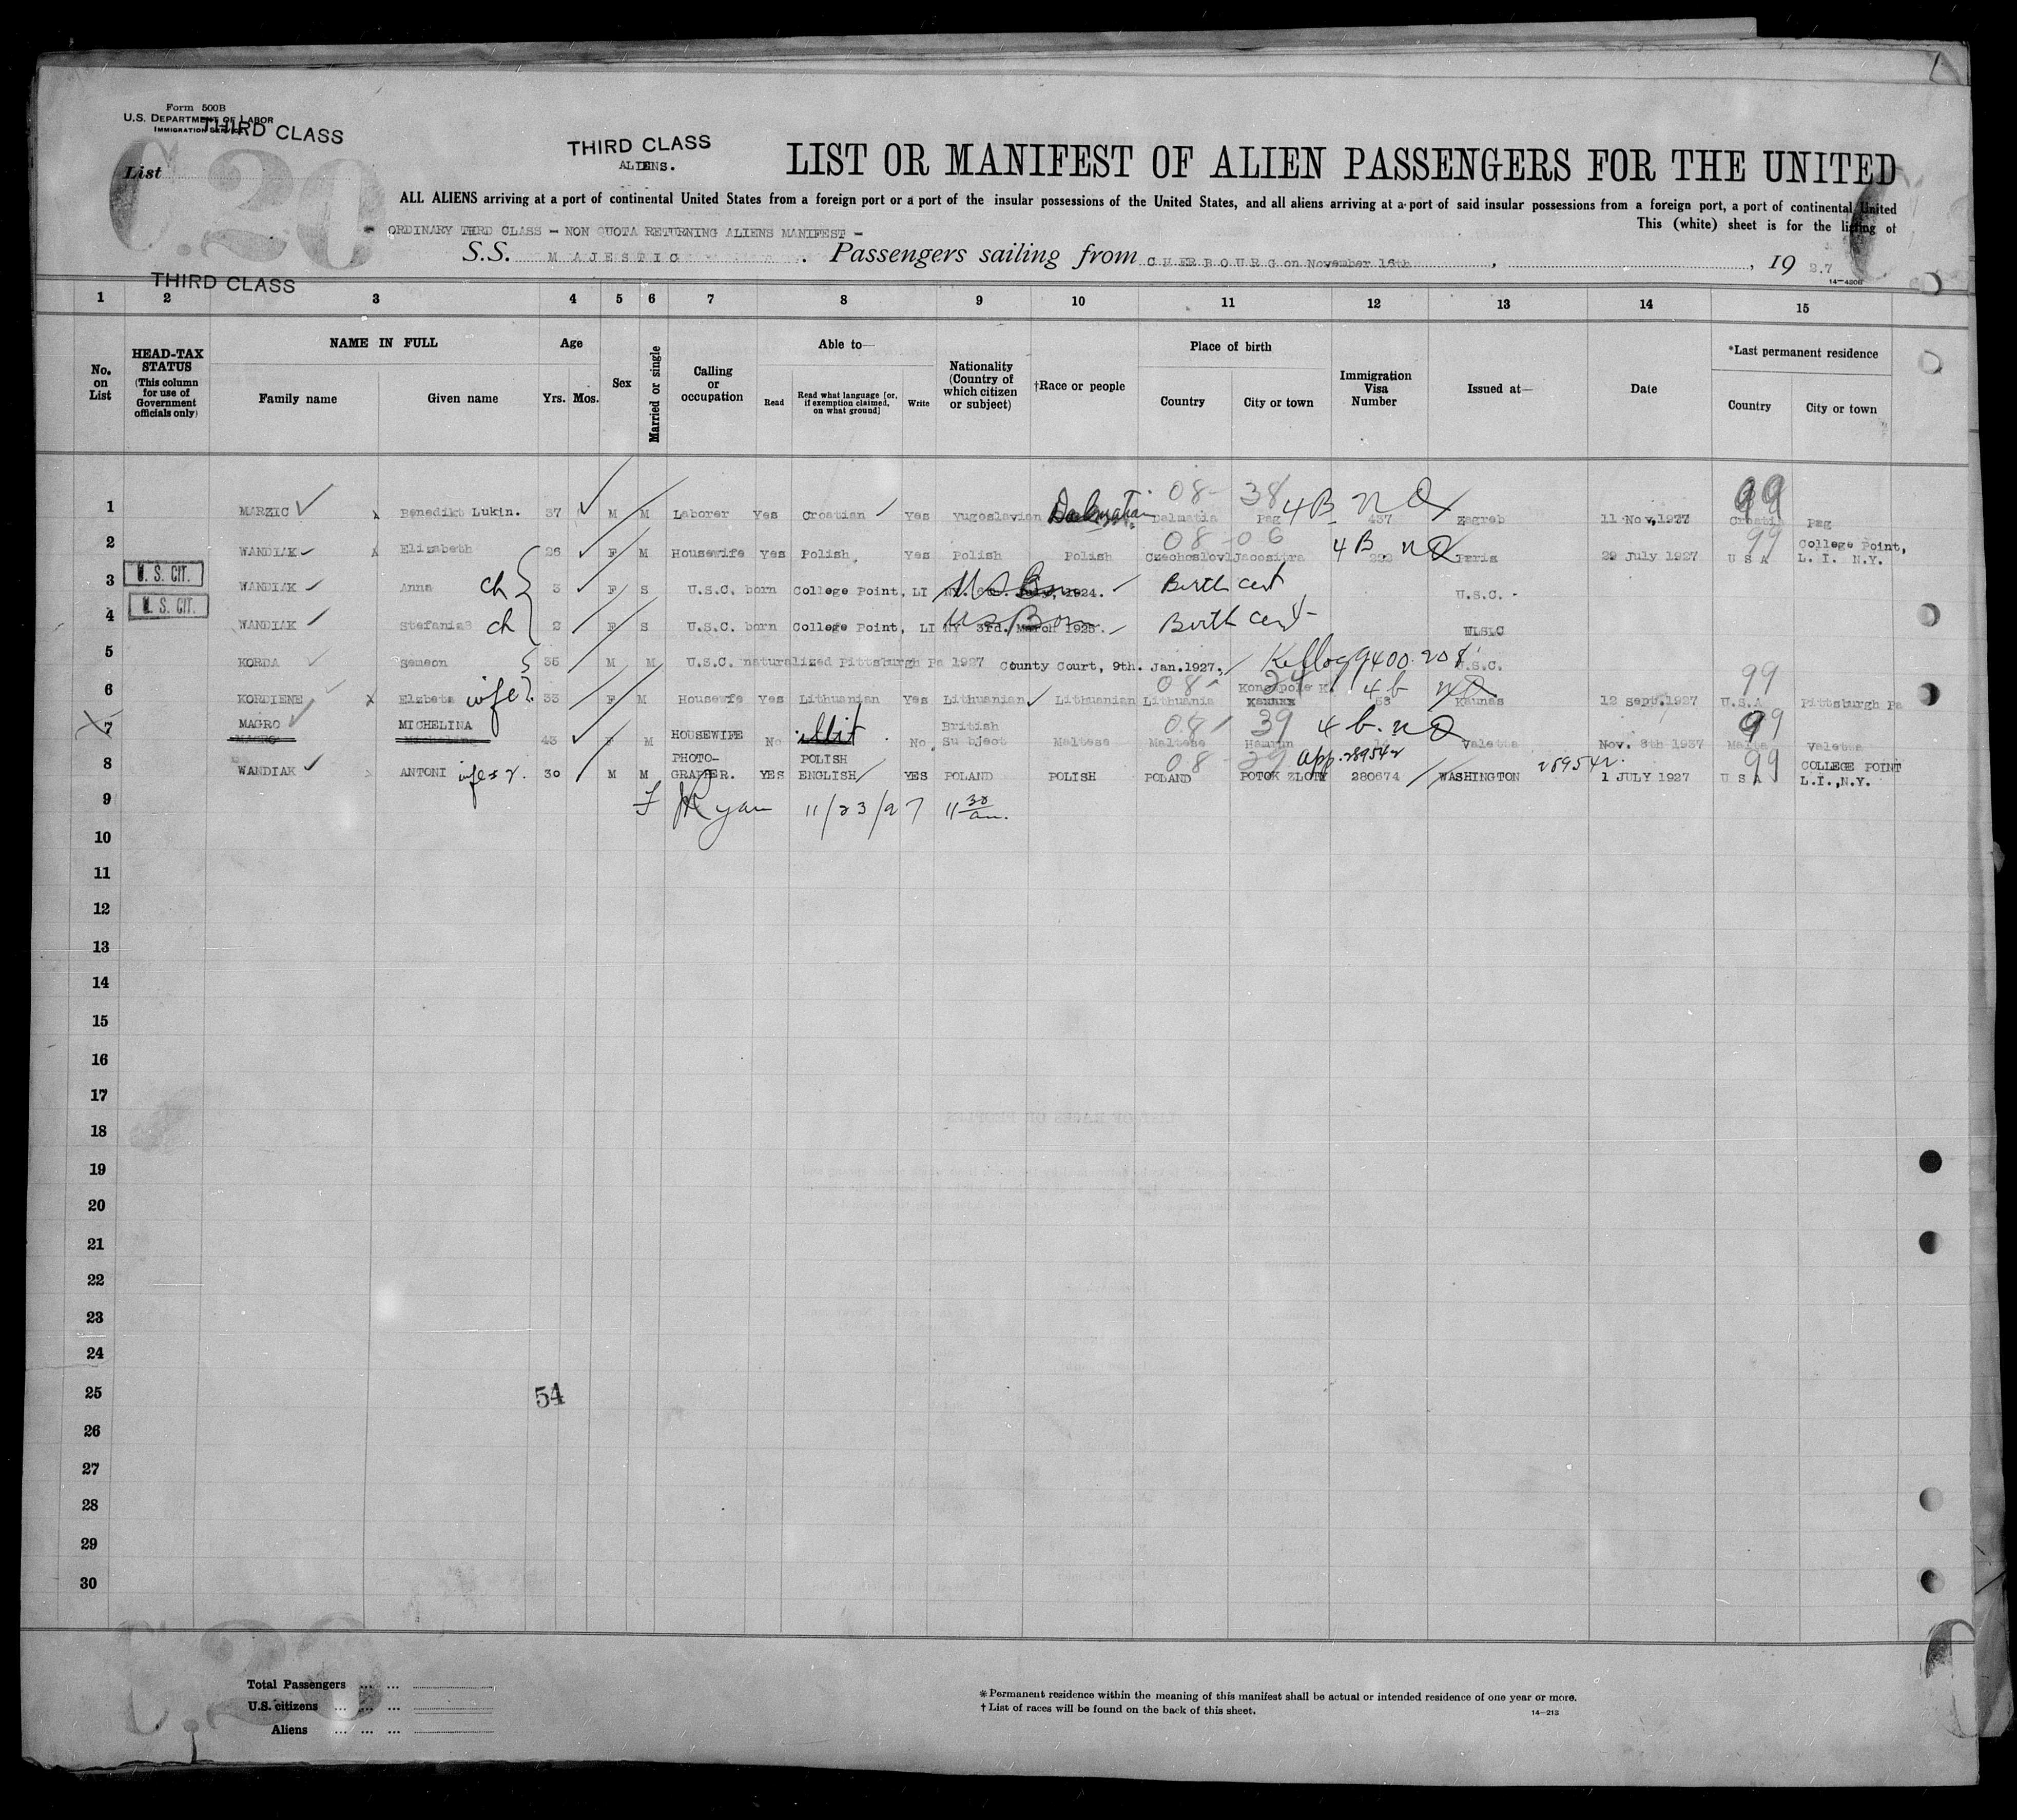 Form 500B
U.S. DEPARTMENT OF LABOR
IMMIGRATION SERVICE
THIRD CLASS
C.20
List
THIRD CLASS
ALIENS.
LIST OR MANIFEST OF ALIEN PASSENGERS FOR THE UNITED
ALL ALIENS arriving at a port of continental United States from a foreign port or a port of the insular possessions of the United States, and all aliens arriving at a port of said insular possessions from a foreign port, a port of continental United
This (white) sheet is for the listing of
- ORDINARY THRD CLASS - NON QUOTA RETURNING ALIENS MANIFEST -
S.S. MAJESTIC. Passengers sailing from CHERBOURG on November 16th, , 19 27
14-430B
THIRD CLASS
1 2 3 4 5 6 7 8 9 10 11 12 13 14 15
No. on List
HEAD-TAX STATUS
(This column for use of Government officials only)
NAME IN FULL
Family name Given name
Age
Yrs. Mos.
Sex
Married or single
Calling or occupation
Able to—
Read Read what language [or, if exemption claimed, on what ground] Write
Nationality (Country of which citizen or subject)
†Race or people
Place of birth
Country City or town
Immigration Visa Number
Issued at—
Date
*Last permanent residence
Country City or town
1 MARZIC x Benedikt Lukin. 37 M M Laborer Yes Croatian Yes Yugoslavian Dalmatian Dalmatia Pag 437 Zagreb 11 Nov,1927 Croatia Pag
08- 38 4B NQ 99
2 WANDIAK x Elizabeth 26 F M Housewife Yes Polish, Yes Polish Polish Czechoslovl 292 Paris 29 July 1927 U S A College Point, L. I. N.Y.
08-06 4B NQ 99
U. S. CIT.
3 WANDIAK Anna ch 3 F S U.S.C. born College Point, LI 1924. US Born Birth cert U.S.C.
U. S. CIT.
4 WANDIAK Stefania ch 2 F S U.S.C. born College Point, LI NY 3rd. March 1925. US Born Birth cert
5 KORDA 35 M M U.S.C. naturalized Pittsburgh Pa 1927 County Court, 9th. Jan.1927. U.S.C.
6 KORDIENE x Elzbeta wife 33 F M Housewfe Yes Lithuanian Yes Lithuanian Lithuanian Lithuania 58 Kaunas 12 sept.1927 U.S.A Pittsburgh Pa
08- 24 4b NQ 99
7 MAGRO MICHELINA 43 F M HOUSEWIFE No illit No British Subject Maltese Maltese Hamrun Valetta Nov. 8th 1937 Malta Valetta
08 39 4b. NQ 99
8 WANDIAK ANTONI 30 M M PHOTO-GRAPHER. YES POLISH ENGLISH YES POLAND POLISH POLAND POTOK ZLOTY 280674 WASHINGTON 1 JULY 1927 U S A COLLEGE POINT L.I.,N.Y.
08- 29 app. 289542 289542 99
9 Ryan 11/23/27 11 30 am.
10
11
12
13
14
15
16
17
18
19
20
21
22
23
24
25 54
26
27
28
29
30
C.20
Total Passengers
U.S. citizens
Aliens
* Permanent residence within the meaning of this manifest shall be actual or intended residence of one year or more.
† List of races will be found on the back of this sheet.
14-213